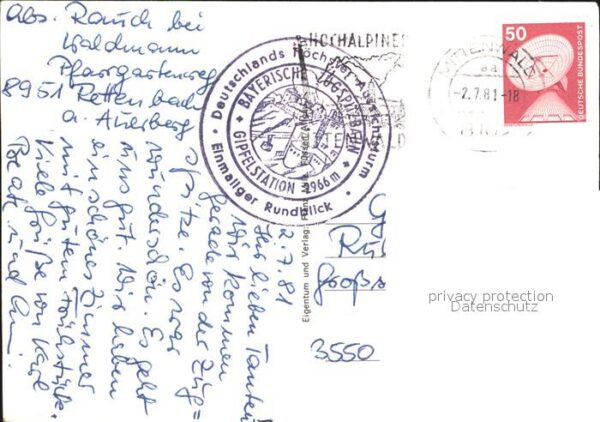 Abs. Rauch bei
Waldmann
Pfarrgartenweg
8951 Rettenbach
a. Auerberg
2.7.81
Ihr lieben Tanten
Wir kommen
gerade von der Zug=
spitze. Es war
wunderschön. Es geht
uns gut. Wir haben
ein schönes Zimmer
mit gutem Frühstück.
Viele Grüße von
Beate und
Deutschlands höchster Aussichtsturm
BAYERISCHE ZUGSPITZBAHN
GIPFELSTATION 2966 m
Einmaliger Rundblick
HOCHALPINE
MITTENWALD
-2.7.81-18
50
DEUTSCHE BUNDESPOST
Eigentum und Verlag:
3550
privacy protection
Datenschutz